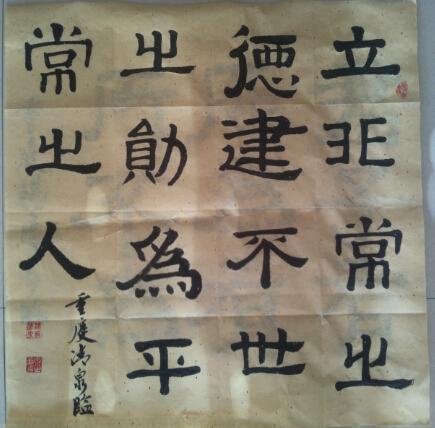 立非常之
德建不世
之勛為平
常之人
重慶浩泉臨